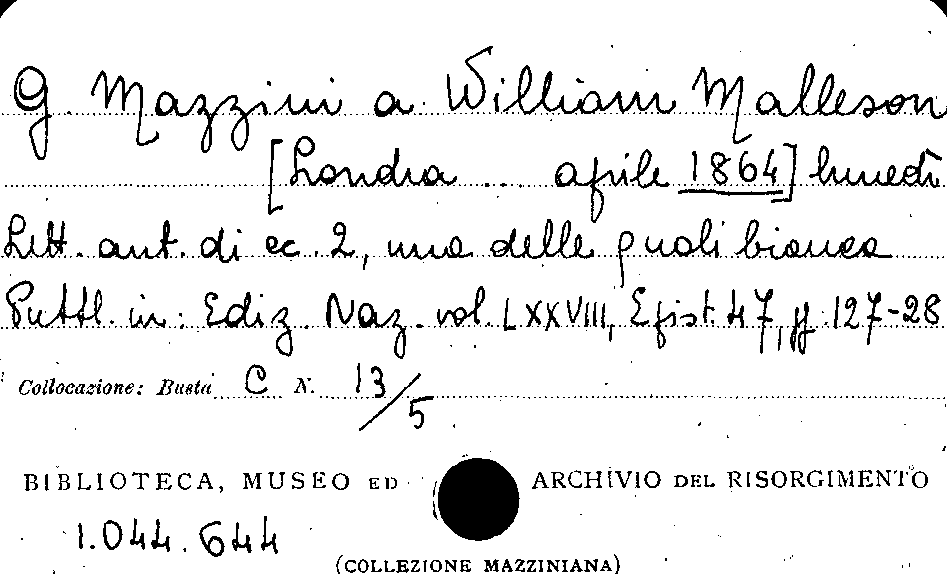 G. Mazzini a William Malleson
[Londra ... aprile 1864] lunedì
Lett. aut. di cc. 2, una delle quali bianca
Pubbl. in: Ediz. Naz. vol. LXXVIII, Epist. 47, pp. 127-28
Collocazione: Busta C N. 13/5
BIBLIOTECA, MUSEO ED ARCHIVIO DEL RISORGIMENTO
1.044.644
(COLLEZIONE MAZZINIANA)